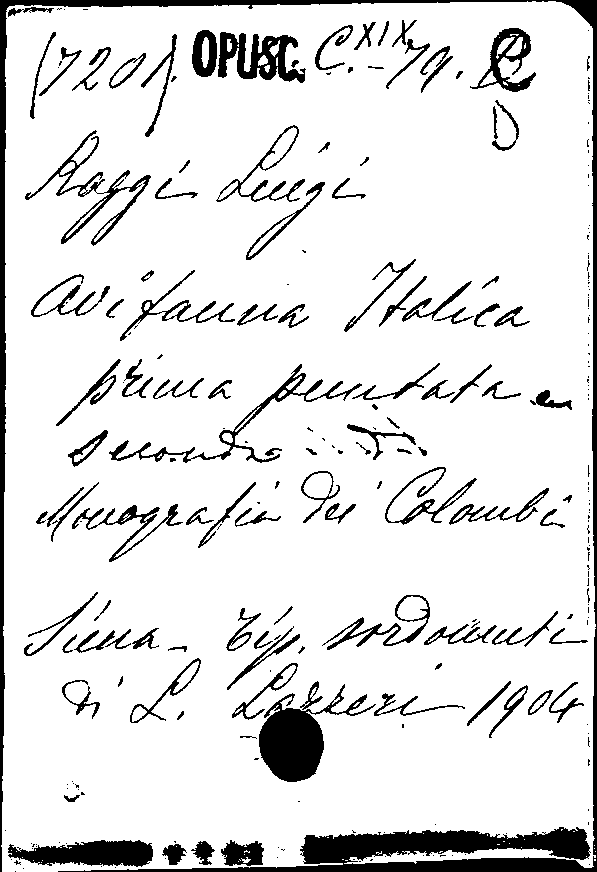 (7201) OPUSC. C. XIX - 79. C
D
Raggi Luigi
Avifauna Italica
prima puntata e
seconda
Monografia dei Colombi
Siena - Tip. sordomuti
di L. Lazzeri 1904